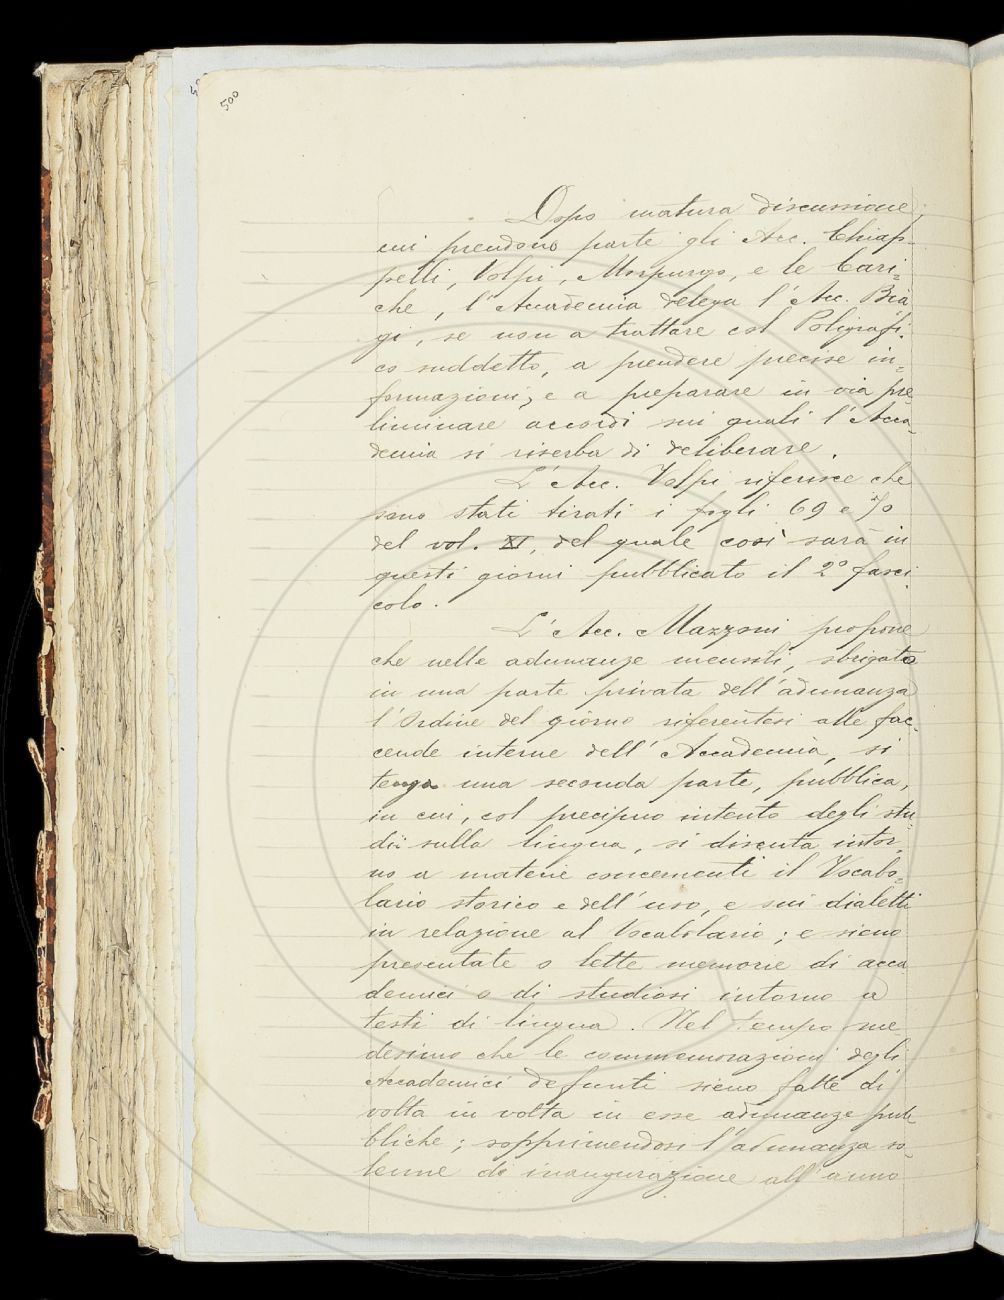 500
Dopo matura discussione,
cui prendono parte gli Acc. Chiap-
pelli, Volpi, Morpurgo, e le Cari=
che, l'Accademia delega l'Acc. Bia
gi, se non a trattare col Poligrafi-
co suddetto, a prendere precise in=
formazioni, e a preparare in via pre
liminare accordi sui quali l'Acca-
demia si riserba di deliberare.
L'Acc. Volpi riferisce che
sono stati tirati i fogli 69 e 70
del vol. XI, del quale così sarà in
questi giorni pubblicato il 2º fasci-
colo.
L'Acc. Mazzoni propone
che nelle adunanze mensili, sbrigato
in una parte privata dell'adunanza
l'Ordine del giorno riferentesi alle fac-
cende interne dell'Accademia, si
tenga una seconda parte, pubblica,
in cui, col precipuo intento degli stu-
dii sulla lingua, si discuta intor-
no a materie concernenti il Vocabo=
lario storico e dell'uso, e sui dialetti
in relazione al Vocabolario; e sieno
presentate o lette memorie di acca
demici o di studiosi intorno a
testi di lingua. Nel tempo me
desimo che le commemorazioni degli
Accademici defunti sieno fatte di
volta in volta in esse adunanze pub
bliche; sopprimendosi l'adunanza so-
lenne di inaugurazione all'anno